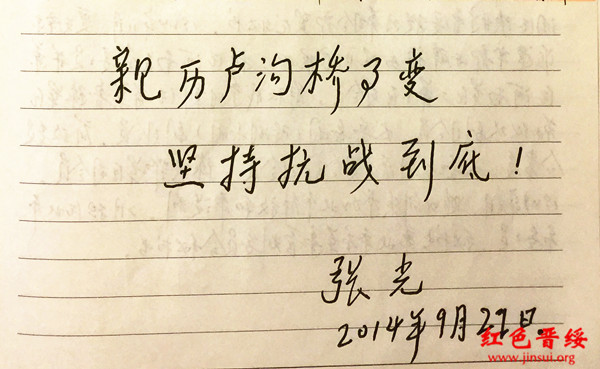 親历卢沟桥事变
坚持抗战到底！
张光
2014年9月29日.
红色晋绥
www.jinsui.org